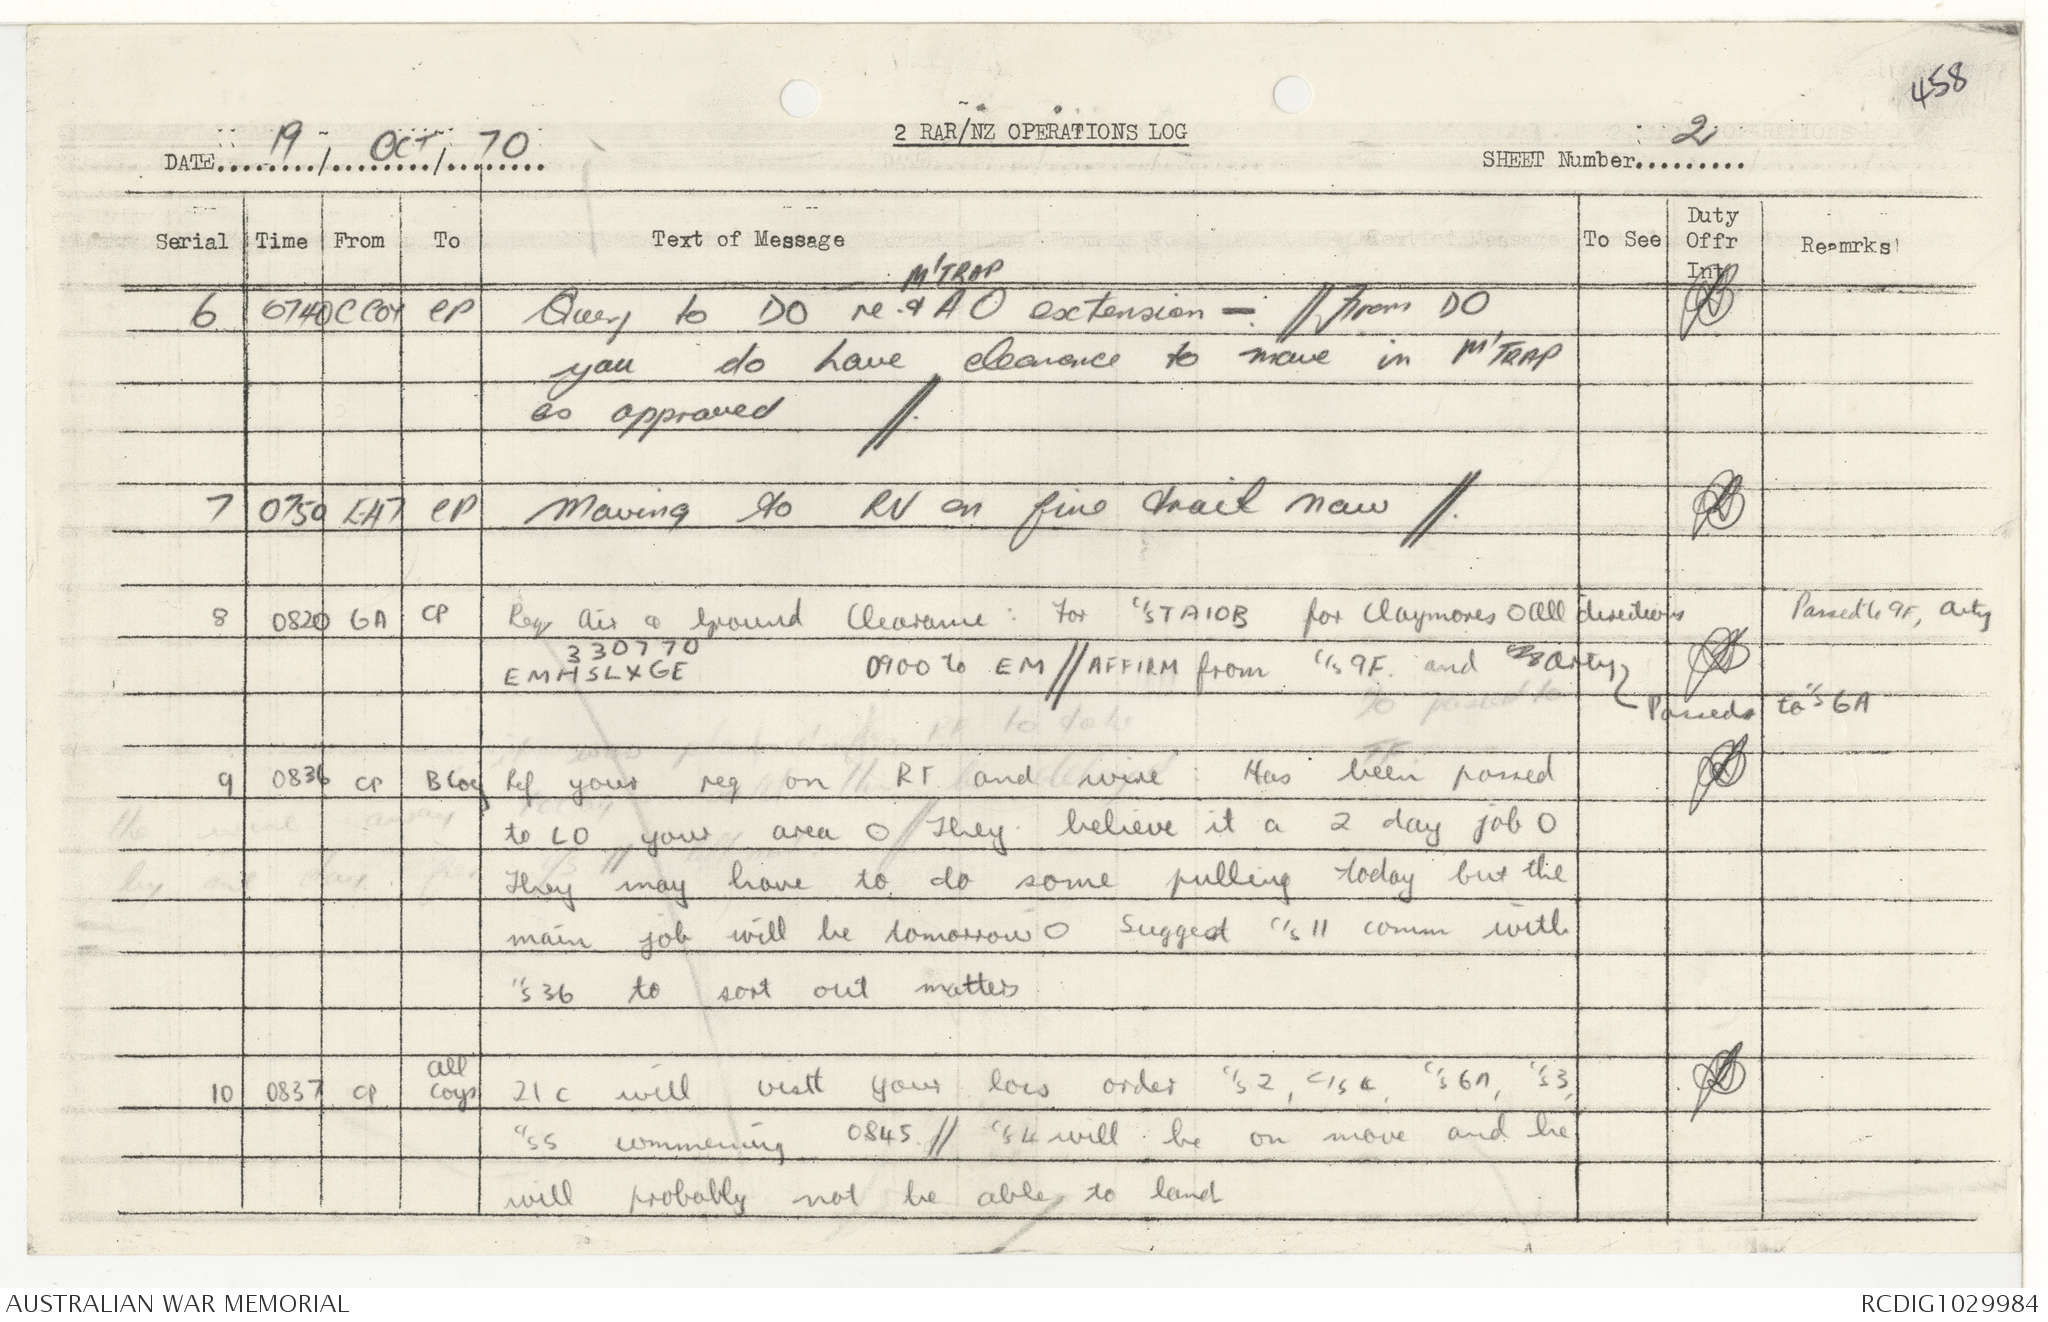 458
2 RAR/NZ OPERATIONS LOG
DATE 19 / OCT / 70
SHEET Number 2
Serial Time From To Text of Message To See Duty Offr Int Remrks
M'TRAP
6 0740 C COY CP Query to DO re. & AO extension - // From DO
you do have clearance to move in M'TRAP
as approved //.
7 0750 CP Moving to RV on fire trail now //.
8 0820 6A CP Req Air & Ground Clearance: For C/S TA10B for Claymores O All directions Passed to 9F, Arty
330770
EMHSLXGE 0900 to EM // AFFIRM from C/S 9F. and Arty
Passed to C/S 6A
9 0836 CP B Coy Ref your req on RT and wire: Has been passed
to LO your area O They believe it a 2 day job O
They may have to do some pulling today but the
main job will be tomorrow O Suggest C/S 11 comm with
C/S 36 to sort out matters
All
10 0837 CP Coys 2IC will visit your locs order C/S 2, C/S 4, C/S 6A, C/S 3,
C/S 5 commencing 0845. // C/S 4 will be on move and he
will probably not be able to land
AUSTRALIAN WAR MEMORIAL
RCDIG1029984